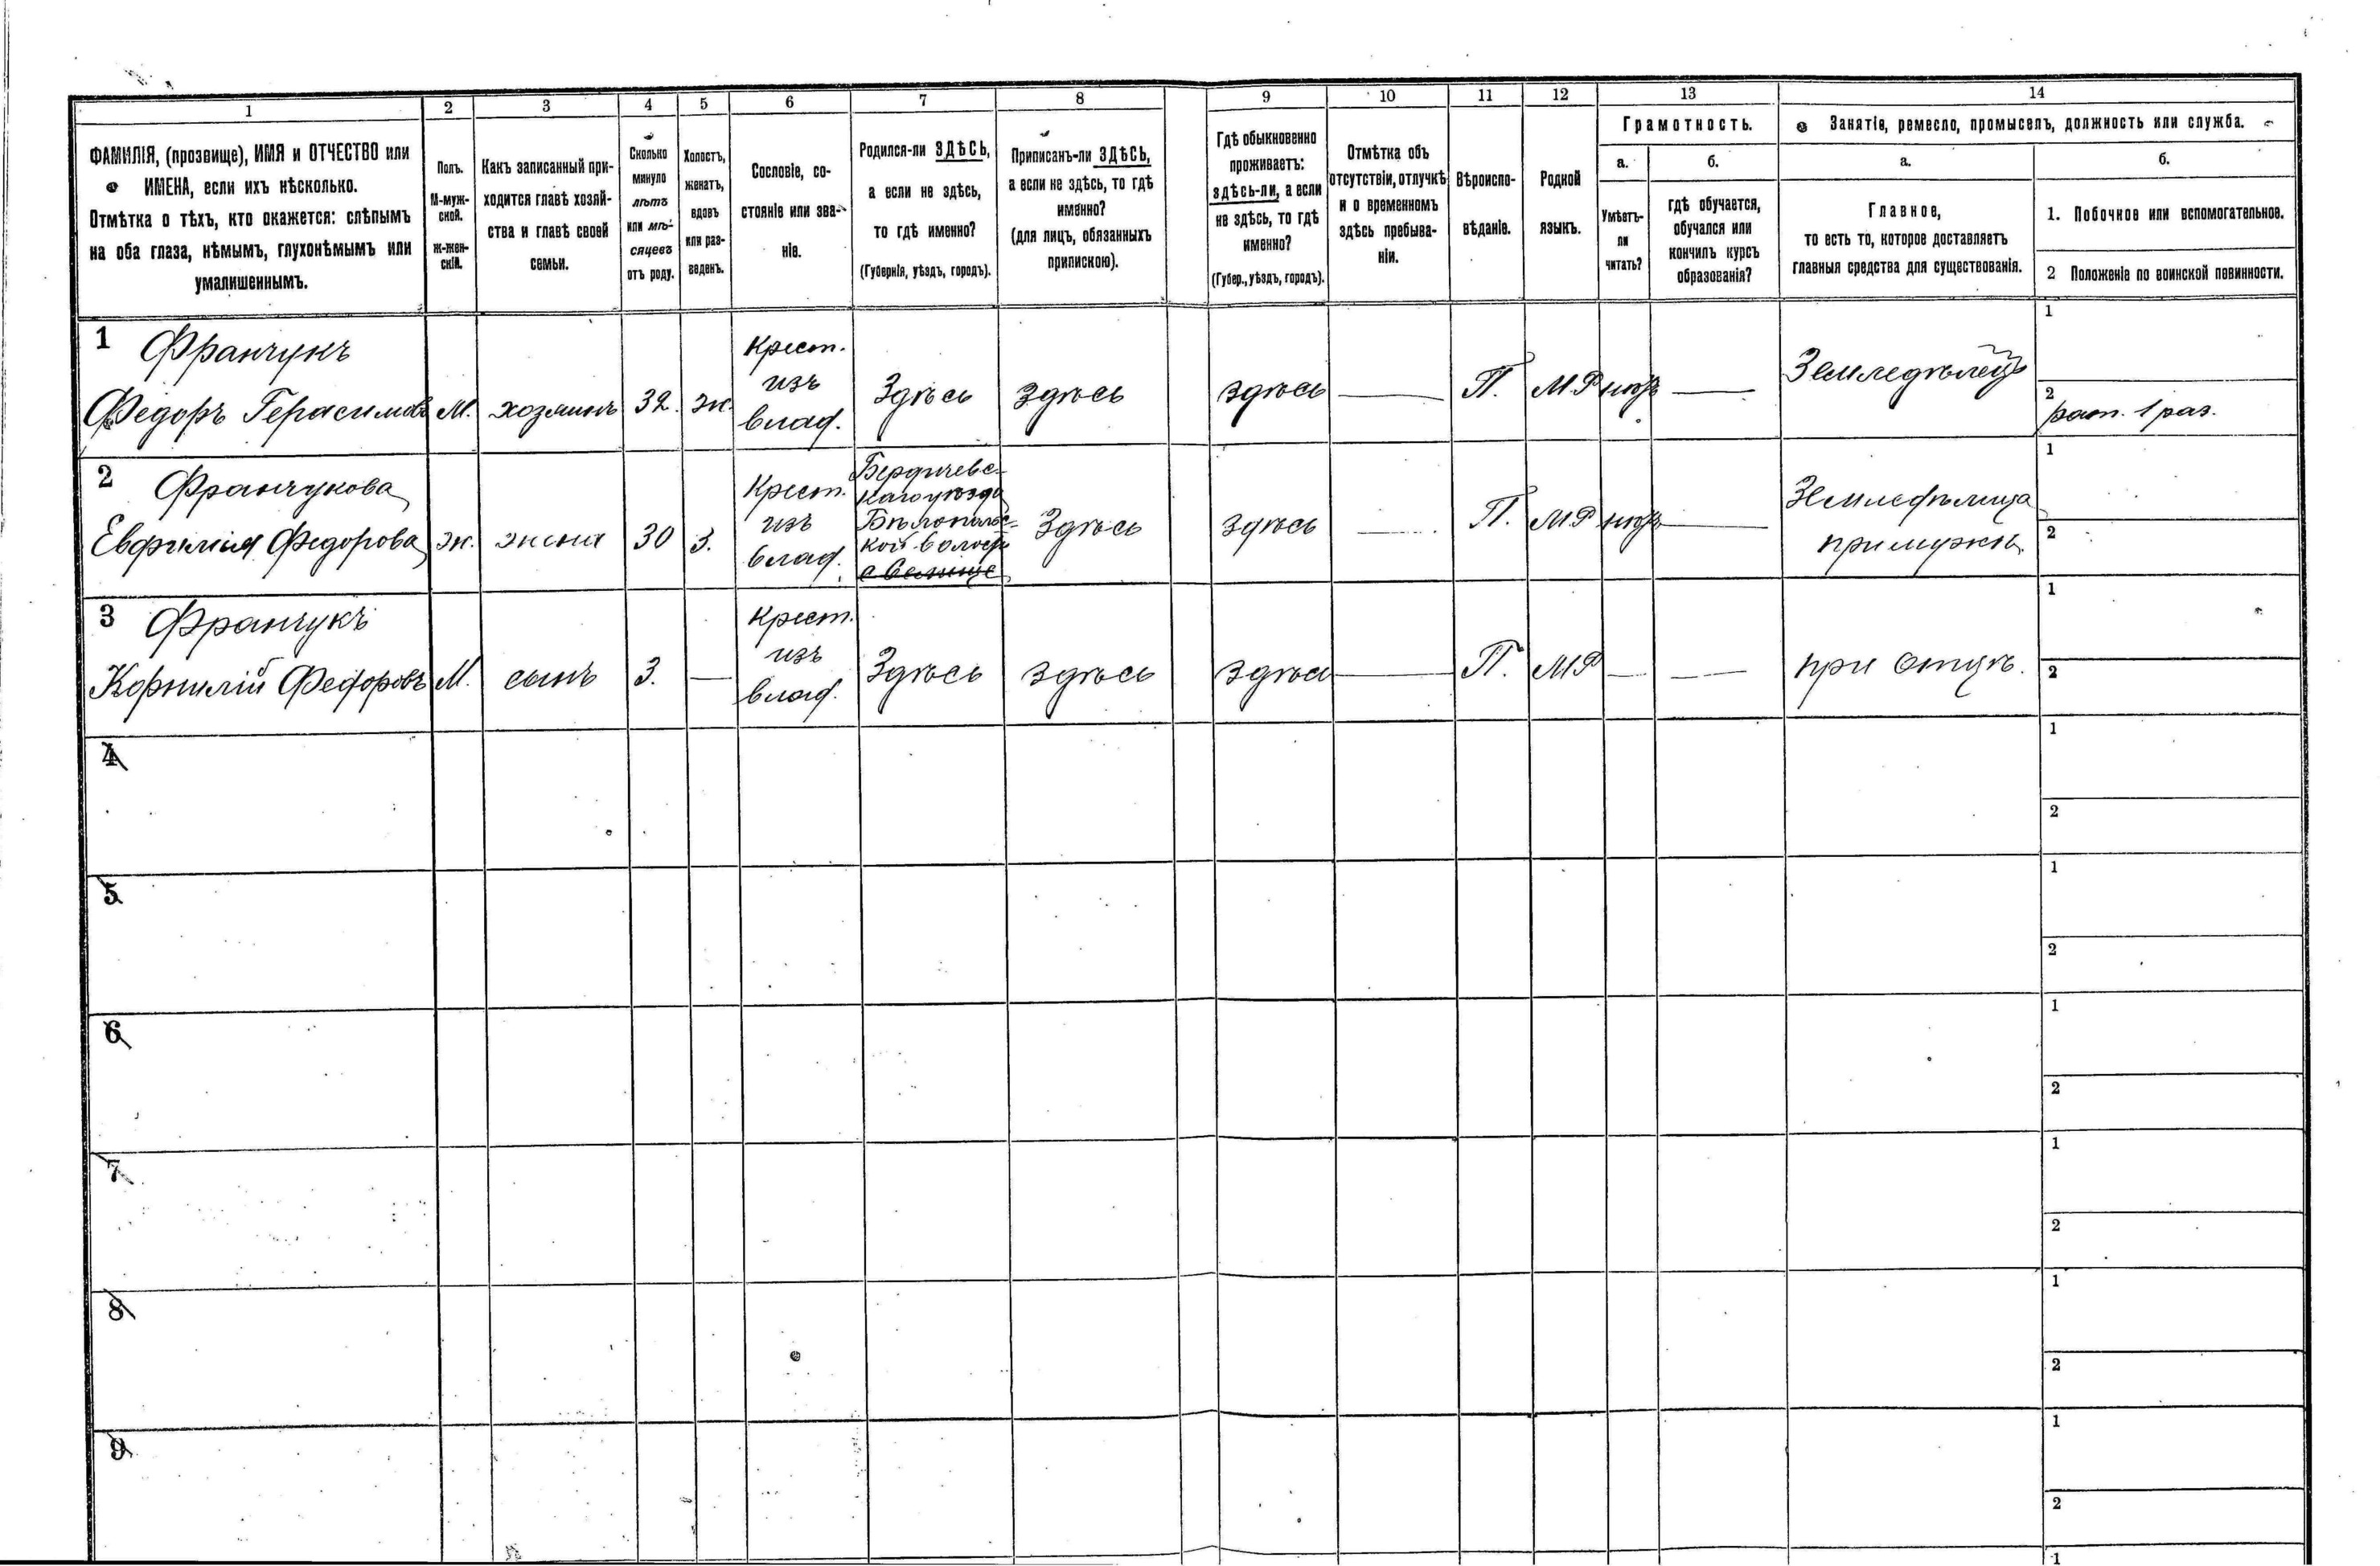 1 2 3 4 5 6 7 8 9 10 11 12 13 14
ФАМИЛІЯ, (прозвище), ИМЯ и ОТЧЕСТВО или
ИМЕНА, если ихъ нѣсколько.
Отмѣтка о тѣхъ, кто окажется: слѣпымъ
на оба глаза, нѣмымъ, глухонѣмымъ или
умалишеннымъ.
Полъ.
М-муж-
ской.
Ж-жен-
скій.
Какъ записанный при-
ходится главѣ хозяй-
ства и главѣ своей
семьи.
Сколько
минуло
лѣтъ
или мѣ-
сяцевъ
отъ роду.
Холостъ,
женатъ,
вдовъ
или раз-
веденъ.
Сословіе, со-
стояніе или зва-
ніе.
Родился-ли ЗДѢСЬ,
а если не здѣсь,
то гдѣ именно?
(Губернія, уѣздъ, городъ).
Приписанъ-ли ЗДѢСЬ,
а если не здѣсь, то гдѣ
именно?
(для лицъ, обязанныхъ
припискою).
Гдѣ обыкновенно
проживаетъ:
здѣсь-ли, а если
не здѣсь, то гдѣ
именно?
(Губер., уѣздъ, городъ).
Отмѣтка объ
отсутствіи, отлучкѣ
и о временномъ
здѣсь пребыва-
ніи.
Вѣроиспо-
вѣданіе.
Родной
языкъ.
Грамотность.
а.
Умѣетъ-
ли
читать?
б.
гдѣ обучается,
обучался или
кончилъ курсъ
образованія?
Занятіе, ремесло, промыселъ, должность или служба.
а.
Главное,
то есть то, которое доставляетъ
главныя средства для существованія.
б.
1. Побочное или вспомогательное.
2 Положеніе по воинской повинности.
1 Франчукъ
Федоръ Герасимовъ М. хозяинъ 32. ж. Крест. изъ влад. Здѣсь здѣсь здѣсь — П. МР нѣтъ — Земледѣлецъ
1
2 рат. 1 раз.
2 Франчукова
Евфимія Федорова ж. жена 30 з. Крест. изъ влад.
Бердичевс-
каго уѣзда
Бѣлопольс-
кой волости
Здѣсь здѣсь — П. МР нѣтъ — Земледѣлица
при мужѣ
1
2
3 Франчукъ
Корнилій Федоровъ М. сынъ 3. — Крест. изъ влад. Здѣсь здѣсь здѣсь — П. МР — — при отцѣ.
1
2
4
1
2
5
1
2
6
1
2
7
1
2
8
1
2
9
1
2
1